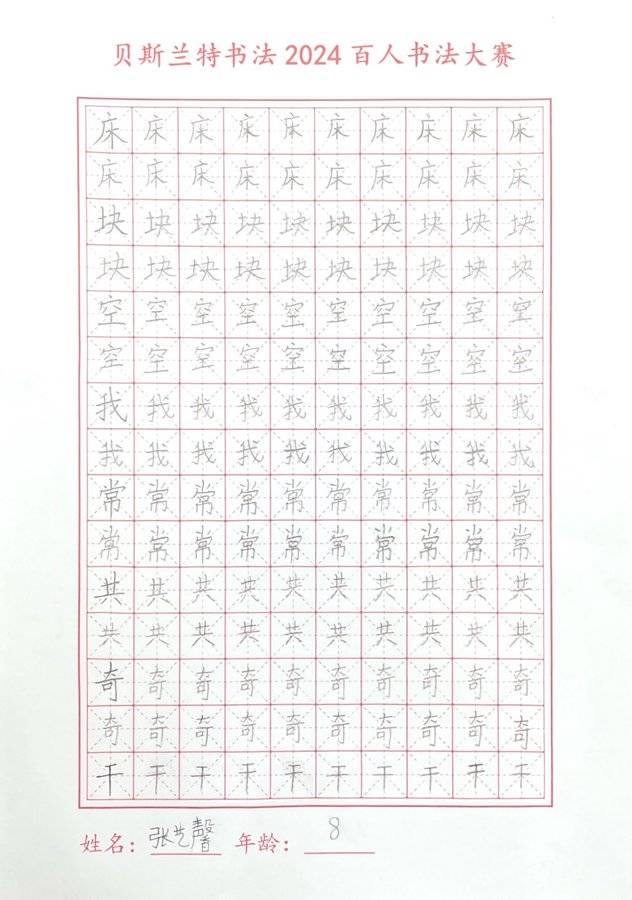 贝斯兰特书法2024百人书法大赛
床床床床床床床床床床
床床床床床床床床床床
块块块块块块块块块块
块块块块块块块块块块
空空空空空空空空空空
空空空空空空空空空空
我我我我我我我我我我
我我我我我我我我我我
常常常常常常常常常常
常常常常常常常常常常
共共共共共共共共共共
共共共共共共共共共共
奇奇奇奇奇奇奇奇奇奇
奇奇奇奇奇奇奇奇奇奇
干干干干干干干干干干
姓名：张艺馨 年龄：8